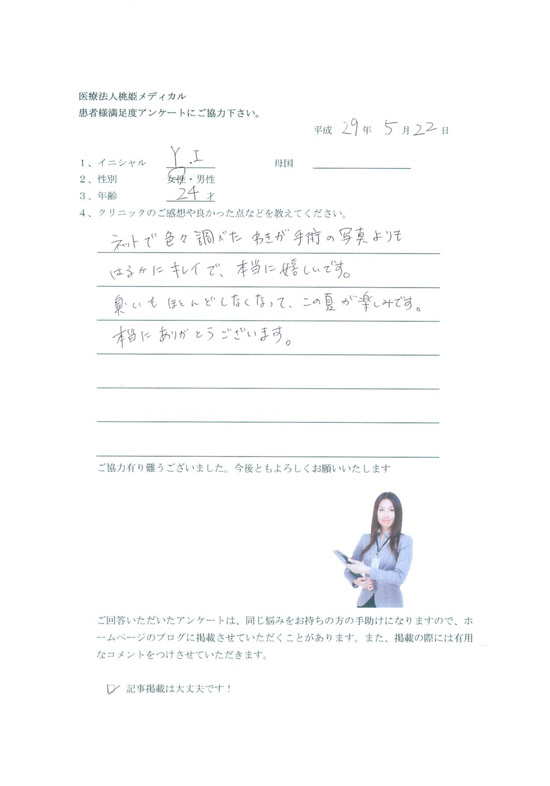 医療法人桃姫メディカル
患者様満足度アンケートにご協力下さい。
平成 29年 5月22日
1、イニシャル Y.I 母国
2、性別 女性・男性
3、年齢 24才
4、クリニックのご感想や良かった点などを教えてください。
ネットで色々調べた わきが手術の写真よりも
はるかにキレイで、本当に嬉しいです。
臭いもほとんどしなくなって、この夏が楽しみです。
本当にありがとうございます。
ご協力有り難うございました。今後ともよろしくお願いいたします
ご回答いただいたアンケートは、同じ悩みをお持ちの方の手助けになりますので、ホ
ームページのブログに掲載させていただくことがあります。また、掲載の際には有用
なコメントをつけさせていただきます。
記事掲載は大丈夫です！